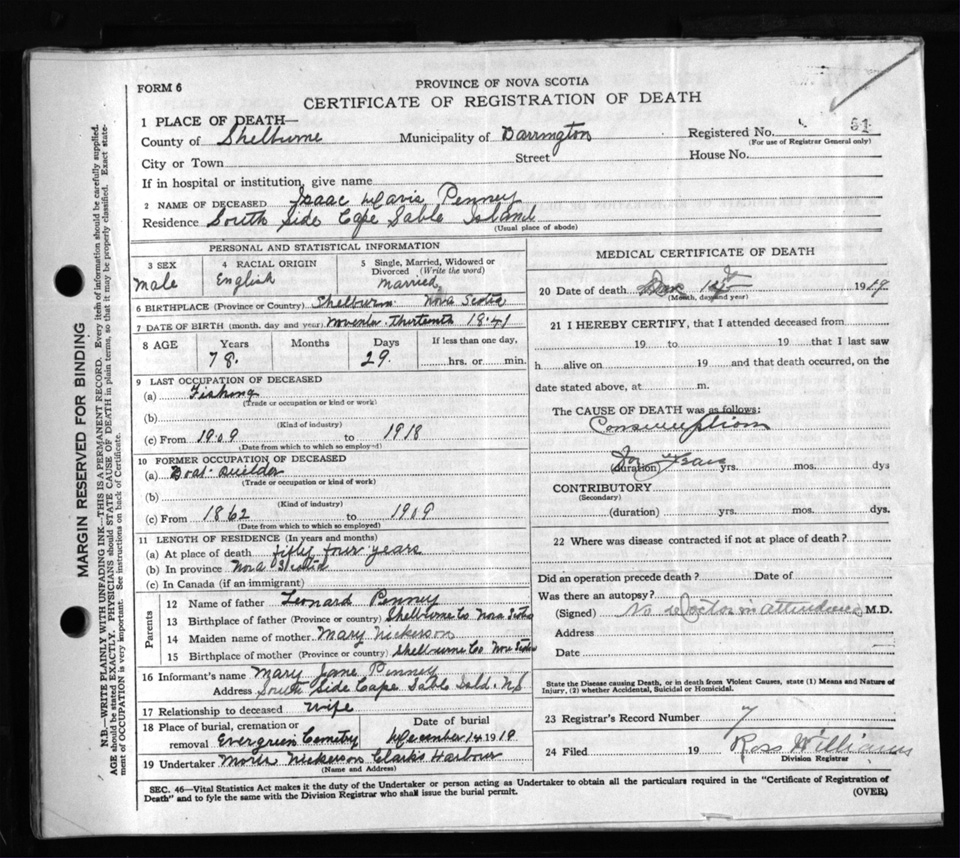 FORM 6
PROVINCE OF NOVA SCOTIA
CERTIFICATE OF REGISTRATION OF DEATH
1 PLACE OF DEATH—
County of Shelburne Municipality of Barrington Registered No. 51
(For use of Registrar General only)
City or Town Street House No.
If in hospital or institution, give name
2 NAME OF DECEASED Isaac Davis Penney
Residence South Side Cape Sable Island
(Usual place of abode)
PERSONAL AND STATISTICAL INFORMATION
3 SEX 4 RACIAL ORIGIN 5 Single, Married, Widowed or Divorced (Write the word)
Male English Married
6 BIRTHPLACE (Province or Country) Shelburn Nova Scotia
7 DATE OF BIRTH (month, day and year) Thirteenth 1841
8 AGE Years Months Days If less than one day,
78 29 hrs. or min.
9 LAST OCCUPATION OF DECEASED
(a) Fishing
(Trade or occupation or kind or work)
(b)
(Kind of industry)
(c) From 1909 to 1918
(Date from which to which so employed)
10 FORMER OCCUPATION OF DECEASED
(a) Boat Builder
(Trade or occupation or kind of work)
(b)
(Kind of industry)
(c) From 1862 to 1909
(Date from which to which so employed)
11 LENGTH OF RESIDENCE (In years and months)
(a) At place of death fifty four years
(b) In province Nova Scotia
(c) In Canada (if an immigrant)
Parents
12 Name of father Leonard Penney
13 Birthplace of father (Province or country) Shelburne Co Nova Scotia
14 Maiden name of mother Mary Nickerson
15 Birthplace of mother (Province or country) Shelburne Co Nova Scotia
16 Informant's name Mary Jane Penney
Address South Side Cape Sable Isld. NS
17 Relationship to deceased Wife
18 Place of burial, cremation or removal Evergreen Cemetry Date of burial December 14 1919
19 Undertaker Nickerson Clarks Harbour
(Name and Address)
MEDICAL CERTIFICATE OF DEATH
20 Date of death Dec 12 1919
(Month, day and year)
21 I HEREBY CERTIFY, that I attended deceased from
19 to 19 that I last saw
h alive on 19 and that death occurred, on the
date stated above, at m.
The CAUSE OF DEATH was as follows:
Consumption
(duration) Years yrs. mos. dys
CONTRIBUTORY
(Secondary)
(duration) yrs. mos. dys.
22 Where was disease contracted if not at place of death?
Did an operation precede death? Date of
Was there an autopsy?
(Signed) No Doctor in attendance M.D.
Address
Date
State the Disease causing Death, or in death from Violent Causes, state (1) Means and Nature of Injury, (2) whether Accidental, Suicidal or Homicidal.
23 Registrar's Record Number 7
24 Filed 19 Ross Williams
Division Registrar
SEC. 46—Vital Statistics Act makes it the duty of the Undertaker or person acting as Undertaker to obtain all the particulars required in the "Certificate of Registration of
Death" and to fyle the same with the Division Registrar who shall issue the burial permit. (OVER)
MARGIN RESERVED FOR BINDING
N.B.—WRITE PLAINLY WITH UNFADING INK—THIS IS A PERMANENT RECORD. Every item of information should be carefully supplied.
AGE should be stated EXACTLY. PHYSICIANS should STATE CAUSE OF DEATH in plain terms, so that it may be properly classified. Exact statement
of OCCUPATION is very important. See instructions on back of Certificate.